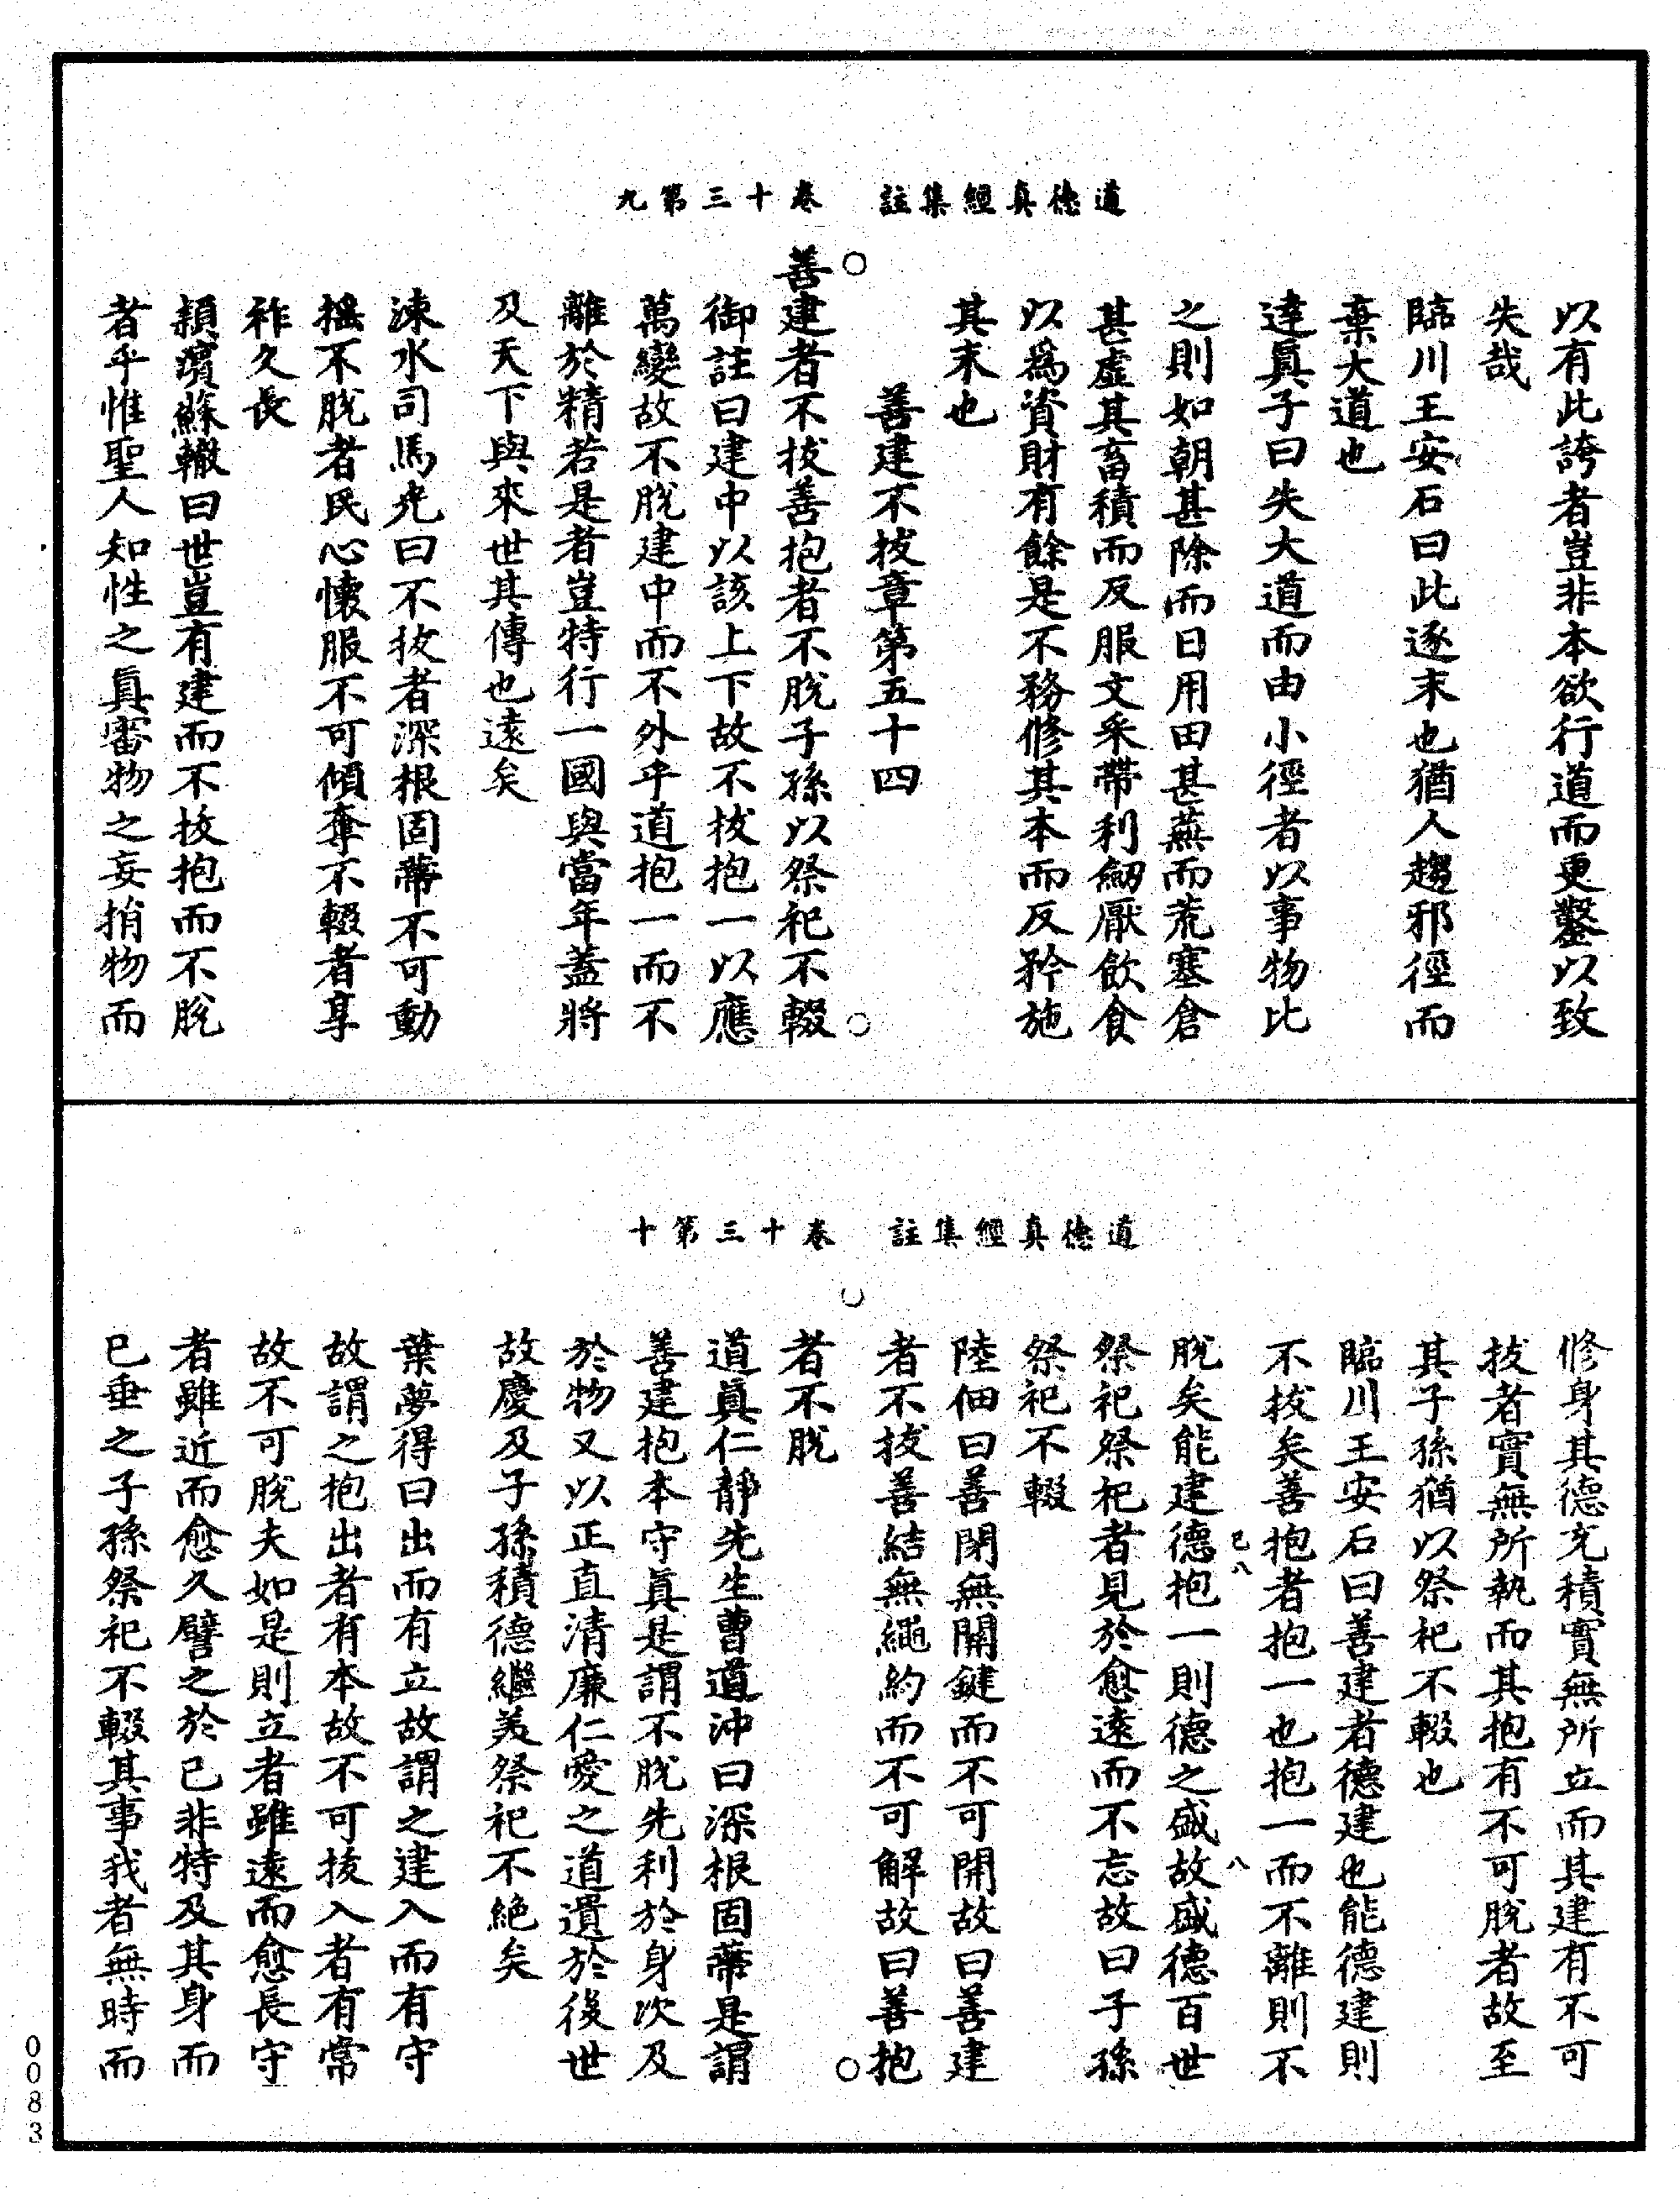 道德真經集註　卷十三第九
以有此誇者豈非本欲行道而更鑿以致
失哉
臨川王安石曰此逐末也猶人趨邪徑而
棄大道也
達真子曰失大道而由小徑者以事物比
之則如朝甚除而日用田甚蕪而荒塞倉
甚虛其畜積而反服文采帶利劒厭飲食
以爲資財有餘是不務修其本而反矜施
其末也
善建不拔章第五十四
善建者不拔善抱者不脫子孫以祭祀不輟
御註曰建中以該上下故不拔抱一以應
萬變故不脫建中而不外乎道抱一而不
離於精若是者豈特行一國與當年蓋將
及天下與來世其傳也遠矣
涑水司馬光曰不拔者深根固蔕不可動
搖不脫者民心懷服不可傾奪不輟者享
祚久長
潁濱蘇轍曰世豈有建而不拔抱而不脫
者乎惟聖人知性之真審物之妄捐物而
道德真經集註　卷十三第十
修身其德充積實無所立而其建有不可
拔者實無所執而其抱有不可脫者故至
其子孫猶以祭祀不輟也
臨川王安石曰善建者德建也能德建則
不拔矣善抱者抱一也抱一而不離則不
己八　八
脫矣能建德抱一則德之盛故盛德百世
祭祀祭祀者見於愈遠而不忘故曰子孫
祭祀不輟
陸佃曰善閉無關鍵而不可開故曰善建
者不拔善結無繩約而不可解故曰善抱
者不脫
道真仁靜先生曹道沖曰深根固蔕是謂
善建抱本守真是謂不脫先利於身次及
於物又以正直清廉仁愛之道遺於後世
故慶及子孫積德繼美祭祀不絕矣
葉夢得曰出而有立故謂之建入而有守
故謂之抱出者有本故不可拔入者有常
故不可脫夫如是則立者雖遠而愈長守
者雖近而愈久譬之於己非特及其身而
已垂之子孫祭祀不輟其事我者無時而
0083